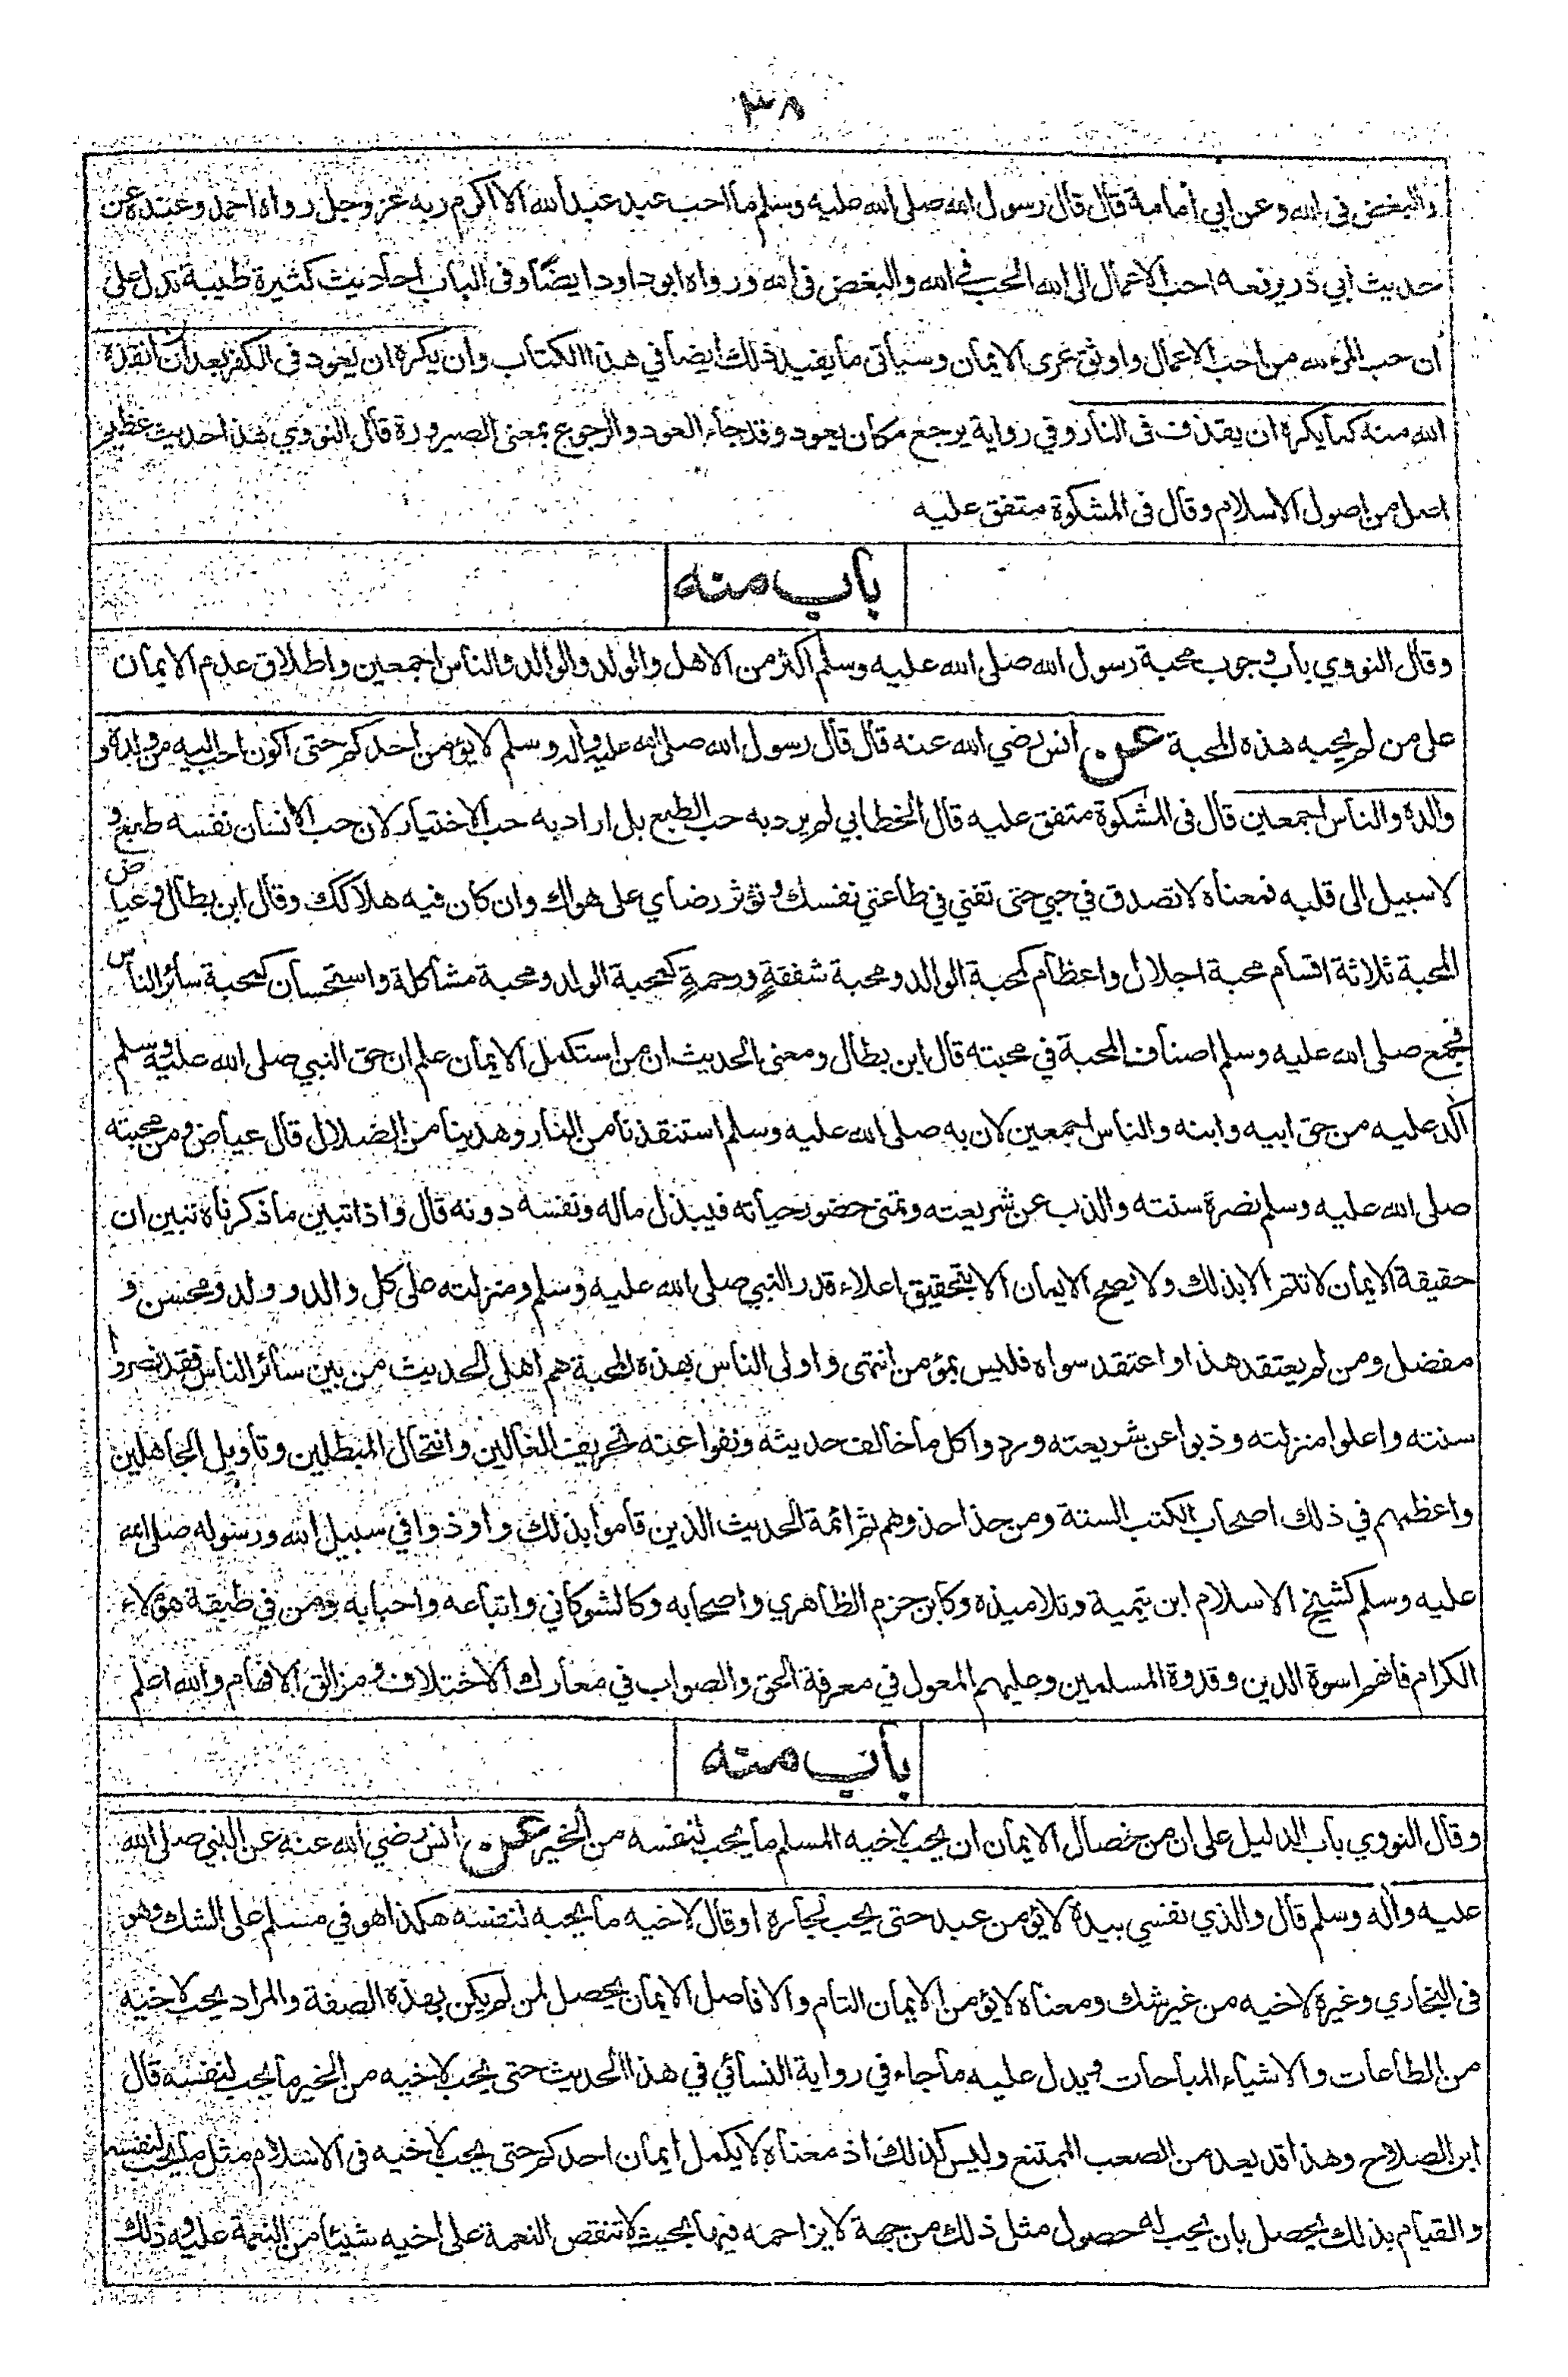 ٣٨
والبغض فى الله وعن ابي أمامة قال قال رسول الله صلى الله عليه وسلم ما احب عبد عبدا لله الا اكرم ربه عز وجل رواه احمد وعنده عن
حديث ابي ذر يرفعه احب الاعمال الى الله الحب فى الله والبغض فى الله ورواه ابو داود ايضًا وفى الباب احاديث كثيرة طيبة تدل على
ان حب المرء لله من احب الاعمال واوثق عرى الايمان وسيأتى ما يفيد ذلك ايضا في هذا الكتاب وان يكره ان يعود فى الكفر بعد ان انقذه
الله منه كما يكره ان يقذف فى النار وفي رواية يرجع مكان يعود وقد جاء العود والرجوع بمعنى الصيرورة قال النووي هذا حديث عظيم
اصل من اصول الاسلام وقال فى المشكوة متفق عليه
باب منه
وقال النووي باب وجوب محبة رسول الله صلى الله عليه وسلم اكثر من الاهل والولد والوالد والناس اجمعين واطلاق عدم الايمان
على من لم يحبه هذه المحبة عن انس رضي الله عنه قال قال رسول الله صلى الله عليه واله وسلم لايؤمن احدكم حتى اكون احب اليه من ولده و
والده والناس اجمعين قال فى المشكوة متفق عليه قال الخطابي لم يرد به حب الطبع بل اراد به حب الاختيار لان حب الانسان نفسه طبع و
لا سبيل الى قلبه فمعناه لا تصدق في حبي حتى تفني في طاعتي نفسك وتؤثر رضاي على هواك وان كان فيه هلاكك وقال ابن بطال وعياض
المحبة ثلاثة اقسام محبة اجلال واعظام كمحبة الوالد ومحبة شفقةٍ ورحمةٍ كمحبة الولد ومحبة مشاكلة واستحسان كمحبة سائر الناس
فجمع صلى الله عليه وسلم اصناف المحبة في محبته قال ابن بطال ومعنى الحديث ان من استكمل الايمان علم ان حق النبي صلى الله عليه وسلم
اكد عليه من حق ابيه وابنه والناس اجمعين لان به صلى الله عليه وسلم استنقذنا من النار وهدينا من الضلال قال عياض ومن محبته
صلى الله عليه وسلم نصرة سنته والذب عن شريعته وتمني حضور حياته فيبذل ماله ونفسه دونه قال واذا تبين ما ذكرناه تبين ان
حقيقة الايمان لا تتم الا بذلك ولا يصح الايمان الا بتحقيق اعلاء قدر النبي صلى الله عليه وسلم ومنزلته على كل والد وولد ومحسن و
مفضل ومن لم يعتقد هذا او اعتقد سواه فليس بمؤمن انتهى واولى الناس بهذه المحبة هم اهل الحديث من بين سائر الناس فقد نصروا
سنته واعلوا منزلته وذبوا عن شريعته وردوا كل ما خالف حديثه ونفوا عنه تحريف الغالين وانتحال المبطلين وتأويل الجاهلين
واعظمهم في ذلك اصحاب الكتب الستة ومن حذا حذوهم ثم ائمة الحديث الذين قاموا بذلك واوذوا في سبيل الله ورسوله صلى الله
عليه وسلم كشيخ الاسلام ابن تيمية وتلاميذه وكابن حزم الظاهري واصحابه وكالشوكاني واتباعه واحبابه ومن في طبقة هؤلاء
الكرام فانهم اسوة الدين وقدوة المسلمين وعليهم المعول في معرفة الحق والصواب في معارك الاختلاف ومزالق الافهام والله اعلم
باب منه
وقال النووي باب الدليل على ان من خصال الايمان ان يحب لاخيه المسلم ما يحب لنفسه من الخير عن انس رضي الله عنه عن النبي صلى الله
عليه وأله وسلم قال والذي نفسي بيده لايؤمن عبد حتى يحب لجاره او قال لاخيه ما يحبه لنفسه هكذا هو في مسلم على الشك وهو
فى البخاري وغيره لاخيه من غير شك ومعناه لايؤمن الايمان التام والا فاصل الايمان يحصل لمن لم يكن بهذه الصفة والمراد يحب لاخيه
من الطاعات والاشياء المباحات ويدل عليه ما جاء في رواية النسائي في هذا الحديث حتى يحب لاخيه من الخير ما يحب لنفسه قال
ابن الصلاح وهذا قد يعد من الصعب الممتنع وليس كذلك اذ معناه لا يكمل ايمان احدكم حتى يحب لاخيه فى الاسلام مثل ما يحب لنفسه
والقيام بذلك يحصل بان يحب له حصول مثل ذلك من جهة لا يزاحمه فيها بحيث لا تنقص النعمة على اخيه شيئا من النعمة عليه وذلك